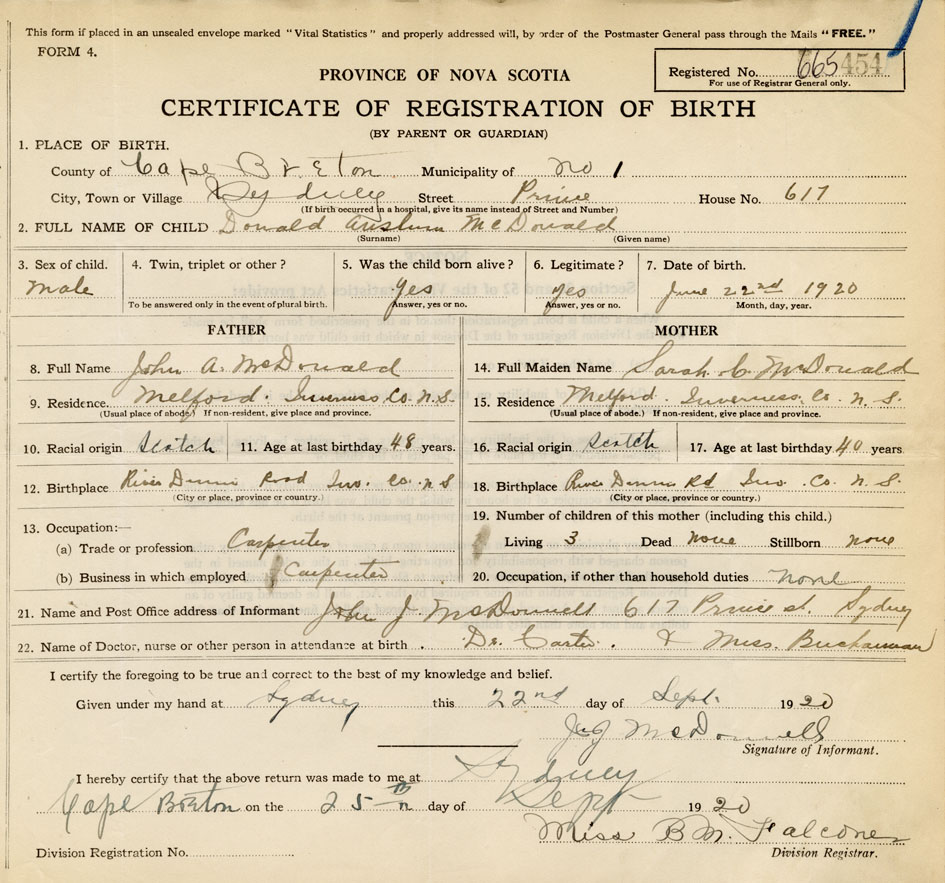 This form if placed in an unsealed envelope marked "Vital Statistics" and properly addressed will, by order of the Postmaster General pass through the Mails "FREE."
FORM 4.
PROVINCE OF NOVA SCOTIA
Registered No. 665 454
For use of Registrar General only.
CERTIFICATE OF REGISTRATION OF BIRTH
(BY PARENT OR GUARDIAN)
1. PLACE OF BIRTH.
County of Cape Breton Municipality of No 1
City, Town or Village Sydney Street Prince House No. 617
(If birth occurred in a hospital, give its name instead of Street and Number)
2. FULL NAME OF CHILD Donald McDonald
(Surname) (Given name)
3. Sex of child. 4. Twin, triplet or other? 5. Was the child born alive? 6. Legitimate? 7. Date of birth.
male Yes yes June 22nd 1920
To be answered only in the event of plural birth. Answer, yes or no. Answer, yes or no. Month, day, year.
FATHER MOTHER
8. Full Name John A. McDonald 14. Full Maiden Name Sarah C. McDonald
9. Residence. Melford. Inverness Co. N.S. 15. Residence Melford. Inverness Co. N. S.
(Usual place of abode.) If non-resident, give place and province. (Usual place of abode.) If non-resident, give place and province.
10. Racial origin Scotch 11. Age at last birthday 48 years. 16. Racial origin Scotch 17. Age at last birthday 40 years
12. Birthplace River Dennis Road Inv. Co. N. S 18. Birthplace River Dennis Rd Inv. Co. N. S.
(City or place, province or country.) (City or place, province or country.)
13. Occupation:— 19. Number of children of this mother (including this child.)
(a) Trade or profession Carpenter Living 3 Dead none Stillborn none
(b) Business in which employed Carpenter 20. Occupation, if other than household duties none
21. Name and Post Office address of Informant John J McDonnell 617 Prince st. Sydney
22. Name of Doctor, nurse or other person in attendance at birth. Dr. Carter. & Miss. Buchannan
I certify the foregoing to be true and correct to the best of my knowledge and belief.
Given under my hand at Sydney this 22nd day of Sept. 1920
J J McDonnell
Signature of Informant.
I hereby certify that the above return was made to me at Sydney
Cape Breton on the 25th day of Sept 1920
Miss B M. Falconer
Division Registration No. Division Registrar.